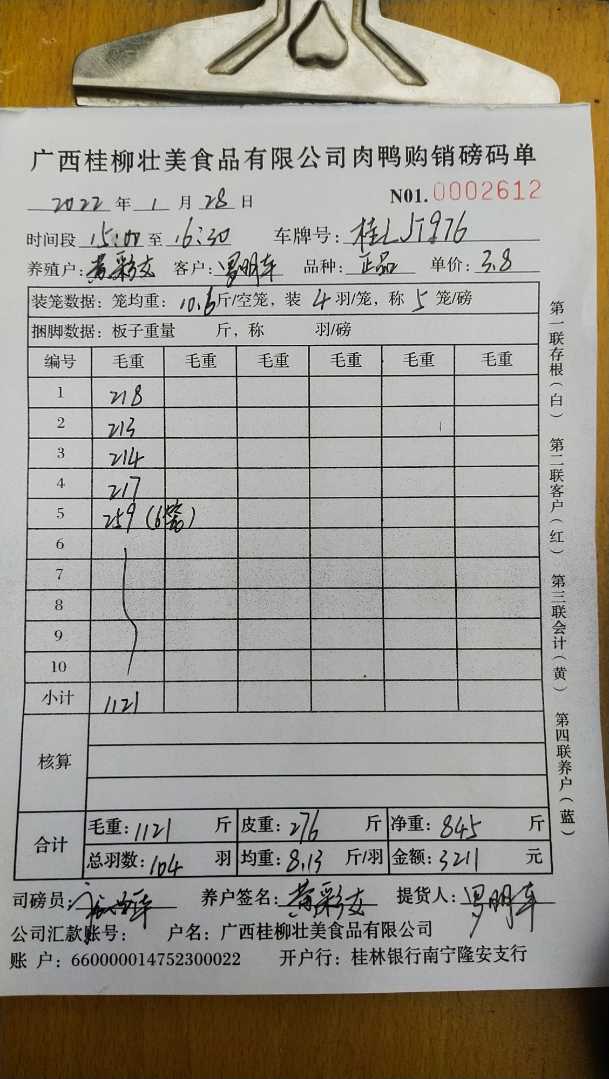 广西桂柳壮美食品有限公司肉鸭购销磅码单
2022 年 1 月 28 日 N01.0002612
时间段 15:00 至 16:30 车牌号: 桂LJT976
养殖户: 黄彩支 客户: 罗明车 品种: 正品 单价: 3.8
装笼数据: 笼均重: 10.6 斤/空笼, 装 4 羽/笼, 称 5 笼/磅
捆脚数据: 板子重量 斤, 称 羽/磅
编号 毛重 毛重 毛重 毛重 毛重 毛重
1 218
2 213
3 214
4 217
5 259 (6笼)
6
7
8
9
10
小计 1121
核算
合计 毛重: 1121 斤 皮重: 276 斤 净重: 845 斤
总羽数: 104 羽 均重: 8.13 斤/羽 金额: 3211 元
司磅员: 养户签名: 黄彩支 提货人: 罗明车
公司汇款账号: 户名: 广西桂柳壮美食品有限公司
账 户: 660000014752300022 开户行: 桂林银行南宁隆安支行
第一联存根(白) 第二联客户(红) 第三联会计(黄) 第四联养户(蓝)